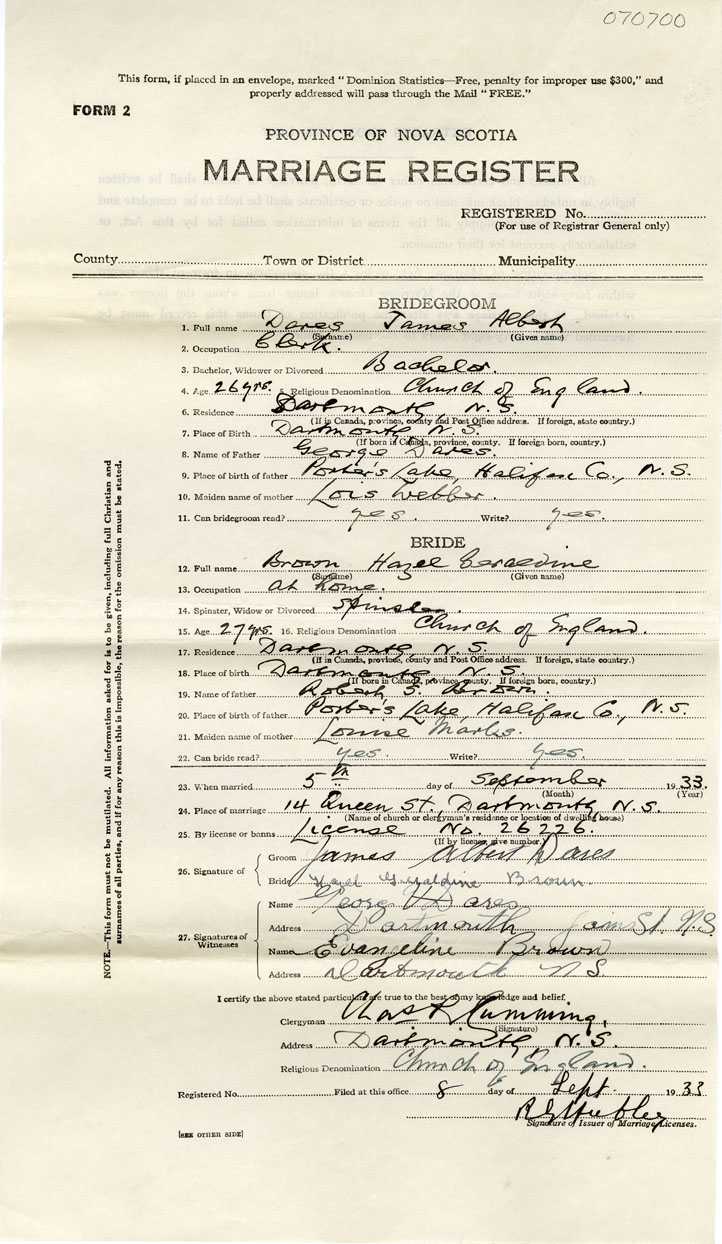 070700
This form, if placed in an envelope, marked "Dominion Statistics—Free, penalty for improper use $300," and
properly addressed will pass through the Mail "FREE."
FORM 2
PROVINCE OF NOVA SCOTIA
MARRIAGE REGISTER
REGISTERED No.
(For use of Registrar General only)
County Town or District Municipality
BRIDEGROOM
1. Full name Dares James Albert
(Surname) (Given name)
2. Occupation Clerk.
3. Bachelor, Widower or Divorced Bachelor.
4. Age 26 yrs. 5. Religious Denomination Church of England.
6. Residence Dartmouth, N.S.
(If in Canada, province, county and Post Office address. If foreign, state country.)
7. Place of Birth Dartmouth, N.S.
(If born in Canada, province, county. If foreign born, country.)
8. Name of Father George Dares.
9. Place of birth of father Porter's Lake, Halifax Co., N.S.
10. Maiden name of mother Lois Webber.
11. Can bridegroom read? yes. Write? yes.
BRIDE
12. Full name Brown Hazel Geraldine
(Surname) (Given name)
13. Occupation at home.
14. Spinster, Widow or Divorced Spinster.
15. Age 27 yrs. 16. Religious Denomination Church of England.
17. Residence Dartmouth, N.S.
(If in Canada, province, county and Post Office address. If foreign, state country.)
18. Place of birth Dartmouth, N.S.
(If born in Canada, province, county. If foreign born, country.)
19. Name of father Robert S. Brown.
20. Place of birth of father Porter's Lake, Halifax Co., N.S.
21. Maiden name of mother Louise Marks.
22. Can bride read? yes. Write? yes.
23. When married 5th day of September 1933.
(Month) (Year)
24. Place of marriage 14 Queen St., Dartmouth, N.S.
(Name of church or clergyman's residence or location of dwelling house)
25. By license or banns License No. 26226.
(If by license, give number.)
26. Signature of
Groom James Albert Dares
Bride Hazel Geraldine Brown.
27. Signatures of Witnesses
Name George Dares
Address Dartmouth St. N.S
Name Evangeline Brown
Address Dartmouth N.S.
I certify the above stated particulars are true to the best of my knowledge and belief.
Clergyman Chas R. Cumming,
(Signature)
Address Dartmouth, N.S.
Religious Denomination Church of England.
Registered No. Filed at this office 8 day of Sept. 1933
Signature of Issuer of Marriage Licenses.
[SEE OTHER SIDE]
NOTE.—This form must not be mutilated. All information asked for is to be given, including full Christian and
surnames of all parties, and if for any reason this is impossible, the reason for the omission must be stated.